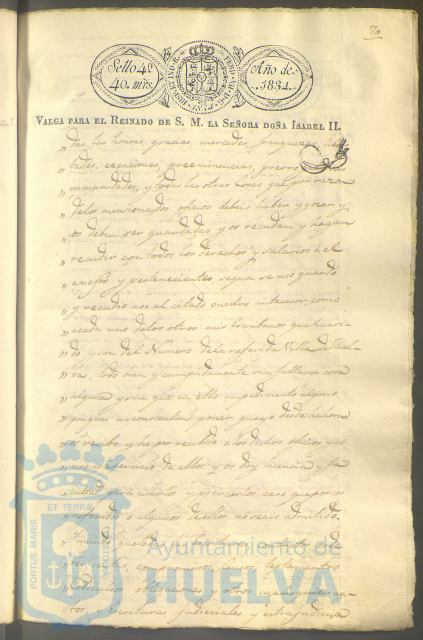 70
Sello 4º
40. mrs
Año de
1834.
VALGA PARA EL REINADO DE S. M. LA SEÑORA DOÑA ISABEL II.
das las honras, gracias, mercedes, franquezas,
tades, exenciones, preeminencias,
" inmunidades, y todas las otras cosas que por razon
" de los mencionados oficios debeis haber y gozar y
" os deben ser guardadas y os recudan y hagan
" recudir con todos los derechos y salarios á el
" anejos y pertenecientes segun se usó guardó
" y recudió asi al citado vuestro antecesor, como
" á cada uno de los otros mis Escribanos que han si-
" do y son del Numero de la referida Villa de Huel-
" va, todo bien y cumplidamente sin faltaros cosa
" alguna y que en ello impedimento alguno
" pongan ni consientan poner que yo desde ahora
" os recibo y he por recibido á los dichos oficios y al
" uso y ejercicio de ellos y os doy licencia y fa
" cultad para usarlos y ejercerlos caso que por os
" referidos o alguno de ellos no seais admitido.
Y mando que
testamentos
Codicilos obligaciones y otros cualesquier au-
tos, y Escrituras judiciales y extrajudicia
PORTUS MARIS
ET TERRÆ
CUSTODIA
Ayuntamiento de
HUELVA